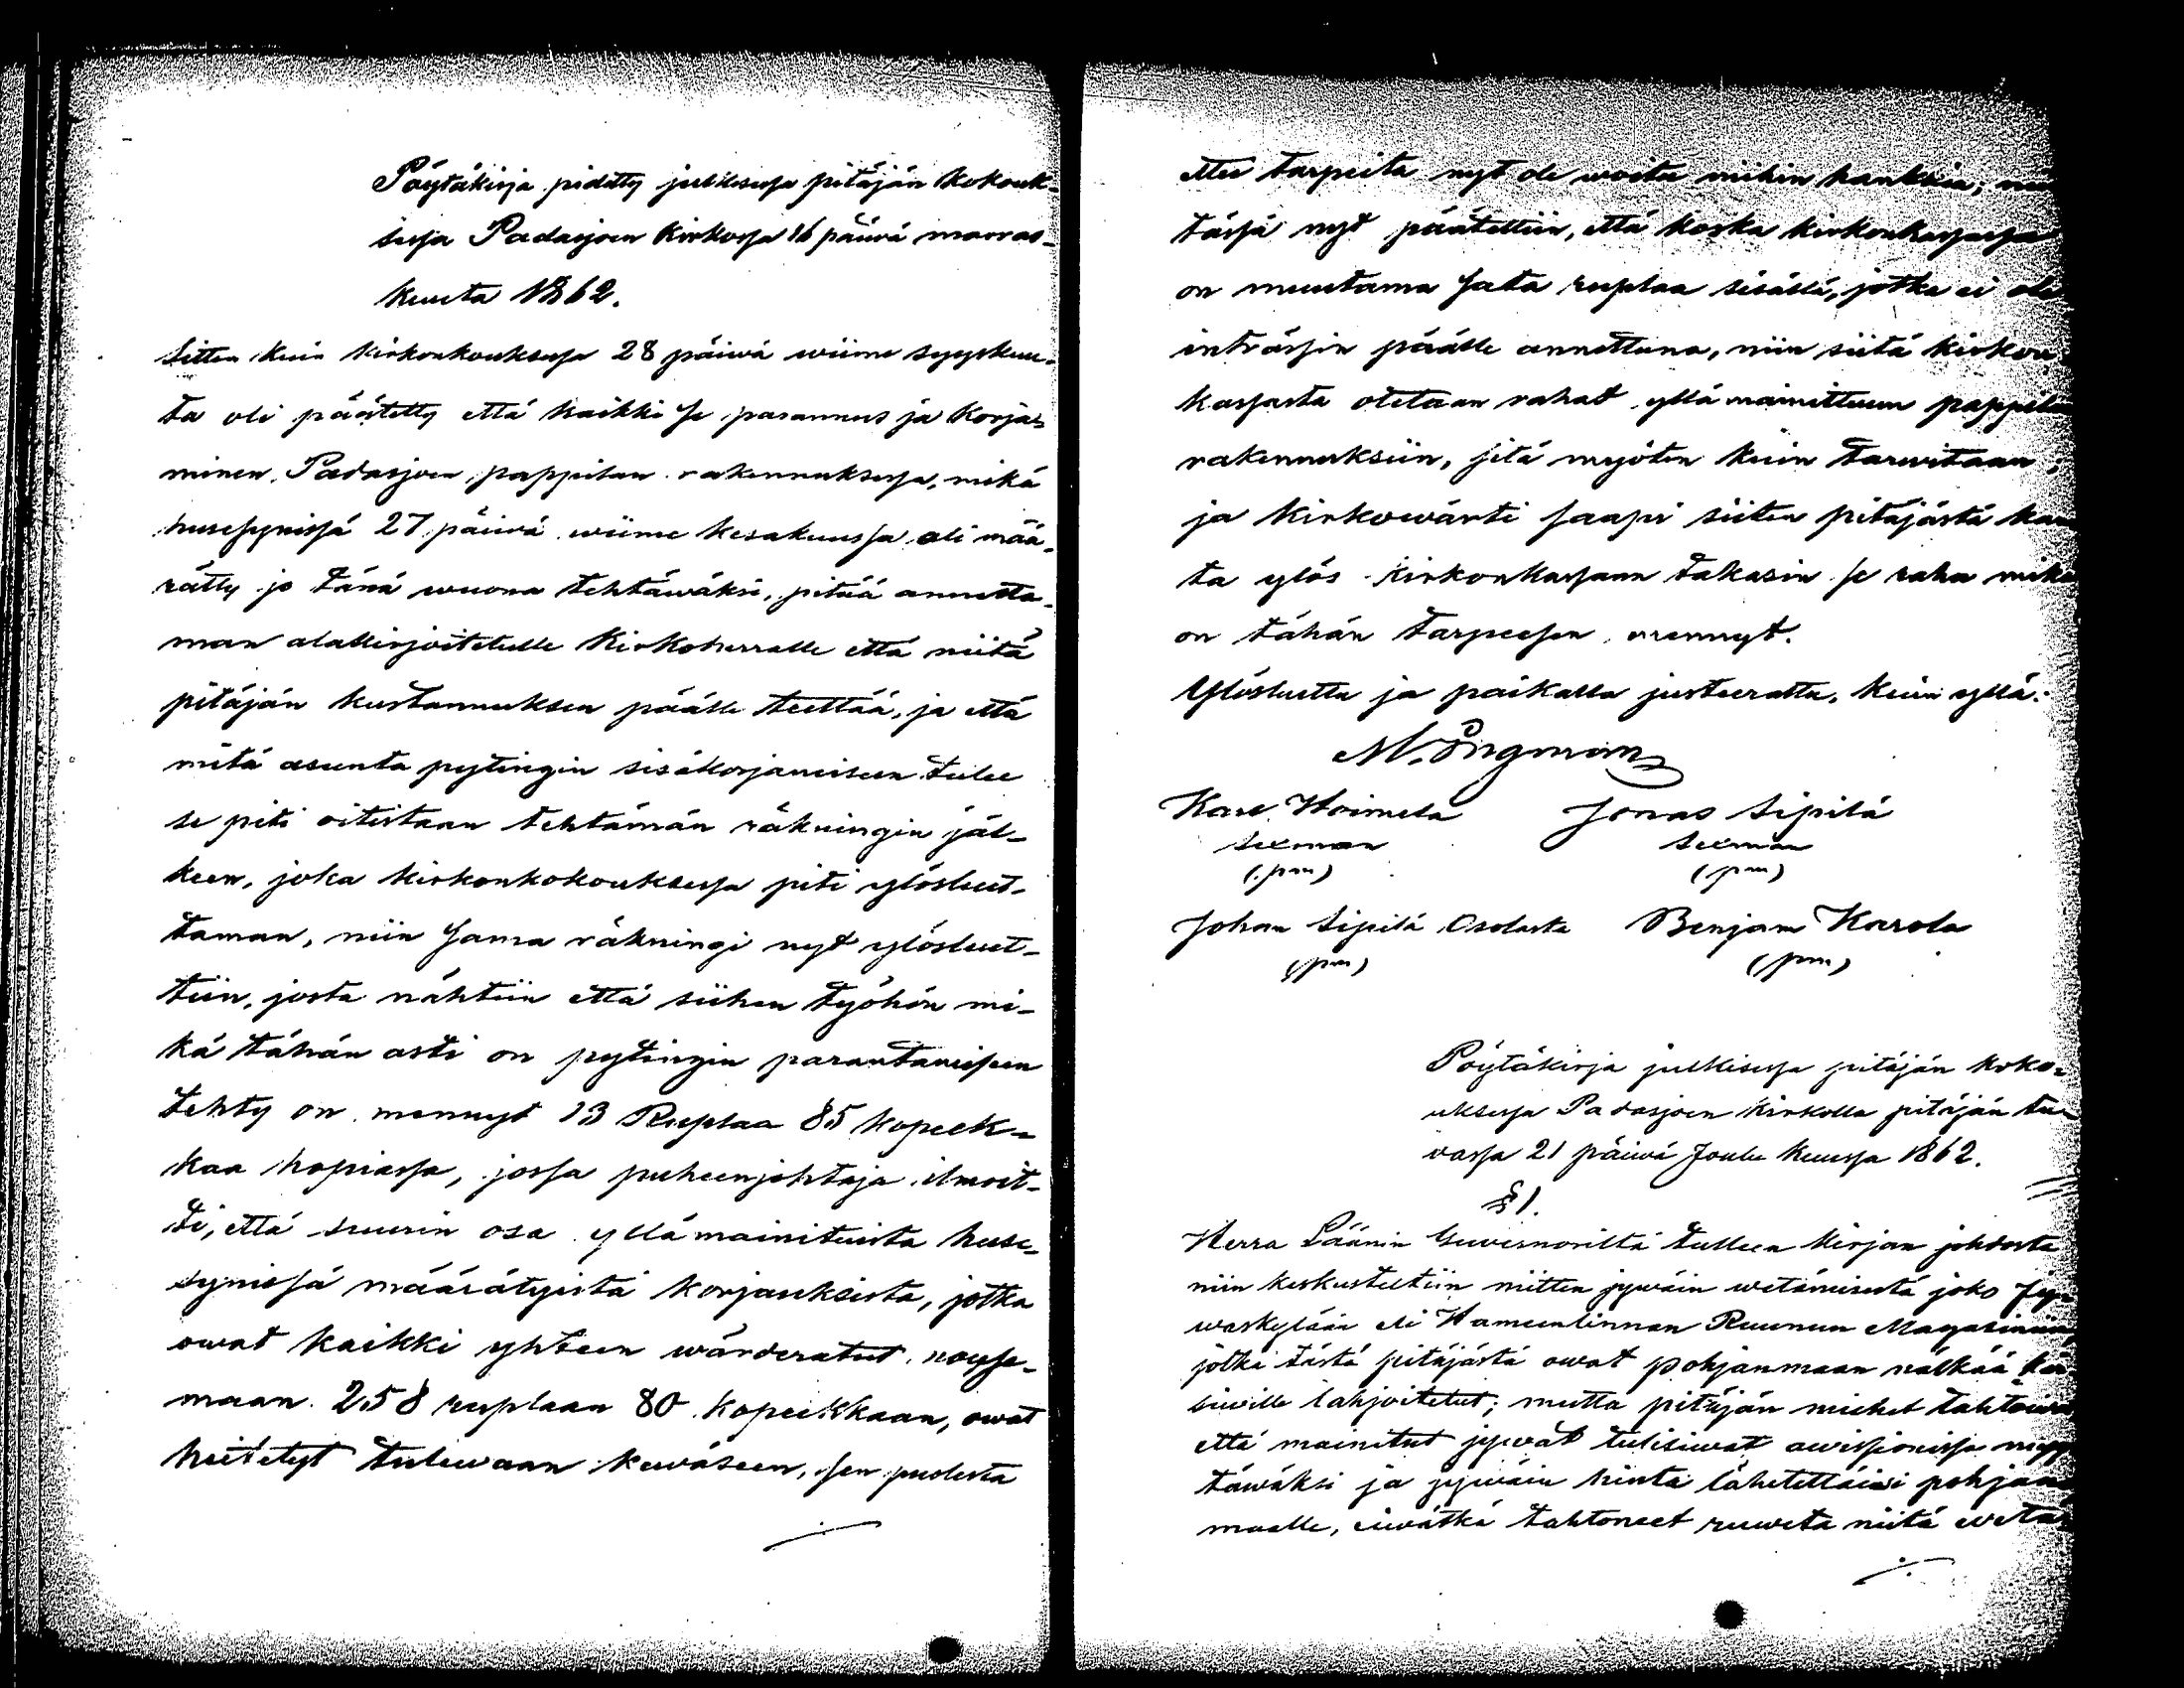 Pöytäkirja pidetty julkisessa pitäjän kokouk-
sessa Padasjoen kirkossa 16 päivä marras-
kuuta 1862.
Sitten kuin kirkonkouksessa 28 päivä wiime syyskuu-
ta oli päätetty että kaikki se parannus ja korja-
minen Padasjoen pappilan rakennuksessa, mikä
husesynissä 27 päivä wiime kesakuussa oli mää-
rätty jo tänä wuona tehtäwäksi, pitää annetta-
man alallkirjoitetulle Kirkoherralle että niitä
pitäjän kustannuksen päälle teettää, ja että
mitä asunto pytingin sisäkorjaamiseen tulee
se piti oitistaan tehtämän räkningin jäl-
keen, joka kirkonkokouksessa piti ylösluet-
taman, niin sama räkningi nyt ylösluet-
tiin, josta nähtiin että siihen työhön mi-
kä tähän asti on pytingin parantamiseen
tehty on mennyt 13 Ruplaa 85 kopeek-
kaa hopiassa, jossa puheenjohtaja ilmoit-
ti, että suurin osa yllä mainituista huse-
synissä määrätyistä korjauksista, jotka
owat kaikki yhteen wärderatut nouse-
maan 258 ruplaan 80 kopeekkaan, owat
heitetyt tulewaan kewäseen, sen puolesta
ettei tarpeita nyt ole woitu niihin hankkia; niin
tässä nyt päätettiin, että koska kirkonkassassa
on muutama sata ruplaa sisällä, jotka ei ole
inträssin päälle annettuna, niin siitä kirkon
kassasta otetaan rahat yllä mainittuun pappilan
rakennuksiin, sitä myöten kuin tarwitaan;
ja kirkowärti saapi siiten pitäjästä kan-
ta ylös kirkonkassaan takasin se raha mikä
on tähän tarpeesen mennyt.
Ylösluettu ja paikalla justeerattu, kuin yllä:
M. Ingman
Karl Hoimela Jonas Sipilä
Sexman Sexman
(pm) (pm)
Johan Sipilä Osolasta Benjam Karola
(pm) (pm)
Pöytäkirja julkisessa pitäjän koko-
uksessa Padasjoen kirkolla pitäjän tu-
vassa 21 päivä Joulu kuussa 1862.
§ 1.
Herra Läänin Guvernöriltä tulleen kirjan johdosta
niin keskusteltiin niitten jywäin wetämisestä joko Jy-
waskylään eli Hameenlinnan Ruunun Magasiniin,
jotka tästä pitäjästä owat pohjanmaan nälkää kär-
siville lahjoitetut; mutta pitäjän miehet tahtoiwat
että mainitut jywät tulisiwat auissionissa myy-
täwäksi ja jywäin hinta lähetettäisi pohjan
maalle, eiwätkä tahtoneet ruweta niitä wetä-